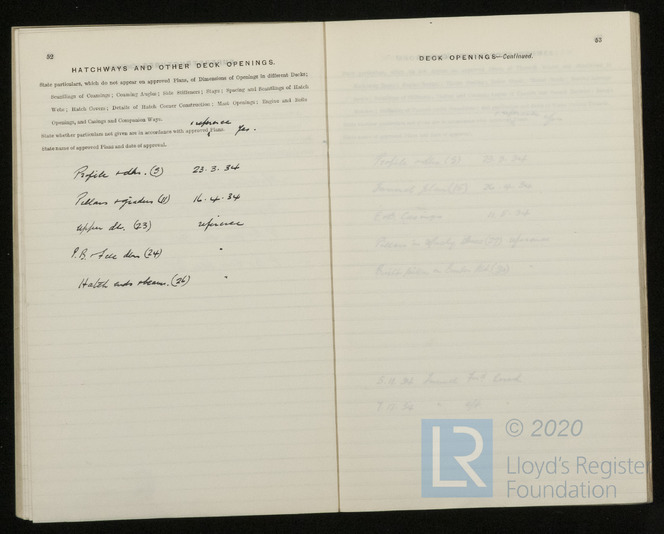 52
HATCHWAYS AND OTHER DECK OPENINGS.
State particulars, which do not appear on approved Plans, of Dimensions of Openings in different Decks;
Scantlings of Coamings; Coaming Angles; Side Stiffeners; Stays; Spacing and Scantlings of Hatch
Webs; Hatch Covers; Details of Hatch Corner Construction; Mast Openings; Engine and Boiler
Openings, and Casings and Companion Ways.
reference
State whether particulars not given are in accordance with approved Plans. Yes.
State name of approved Plans and date of approval.
Profile + dks. (3) 23.3.34
Pillars + girders (11) 16.4.34
Upper dk. (23) reference
P.B. + Fcle dks (24) "
Hatch ends + beams. (26) "
53
DECK OPENINGS—Continued.
© 2020
LR
Lloyd's Register
Foundation